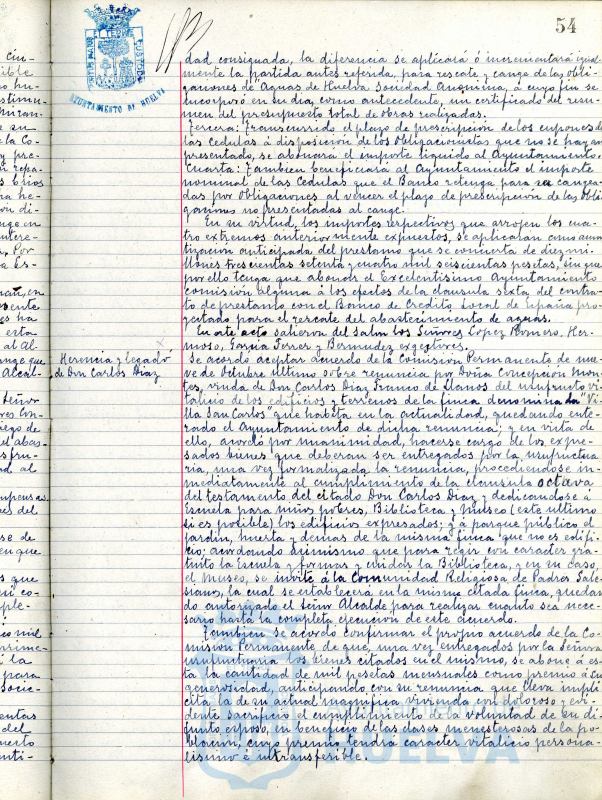 54
AYUNTAMIENTO DE HUELVA
dad consignada, la diferencia se aplicará ó incrementará igual-
mente la partida antes referida, para rescate y cange de las obli-
gaciones de Aguas de Huelva Sociedad Anonima, á cuyo fin se
incorporó en su dia, como antecedente, un certificado del resu-
men del presupuesto total de obras realizadas.
Tercera: Transcurrido el plazo de prescripción de los cupones de
las Cedulas á disposición de los Obligacionistas que no se hayan
presentado, se abonará el importe liquido al Ayuntamiento.
Cuarta: Tambien beneficiará al Ayuntamiento el importe
nominal de las Cedulas que el Banco retenga para su cangea-
das por Obligaciones al vencer el plazo de prescripción de las Obli
gaciones no presentadas al cange.
En su virtud, los importes respectivos que arrojen los cua-
tro extremos anteriormente expuestos, se aplicarán como amor
tización anticipada del prestamo que se concierta de diez mi-
llones trescientas setenta y cuatro mil seiscientas pesetas, sin que
por ello tenga que abonar el Excelentisimo Ayuntamiento
comisión alguna á los efectos de la clausula sexta del contra-
to de prestamo con el Banco de Credito Local de España pro-
yectado para el rescate del abastecimiento de aguas.
En este acto salieron del salon los Señores Lopez Romero, Her-
moso, Garcia Ferrer y Bermudez exgestores.
Herencia y legado
de Don Carlos Diaz
Se acordó aceptar acuerdo de la Comisión Permanente de nue-
ve de Octubre ultimo sobre renuncia por Doña Concepcion Mon-
tes, viuda de Don Carlos Diaz Franco de Llanos del usufructo vi-
talicio de los edificios y terrenos de la finca denominada "Vi-
lla San Carlos" que habita en la actualidad, quedando ente-
rado el Ayuntamiento de dicha renuncia; y en vista de
ello, acordó por unanimidad, hacerse cargo de los expre-
sados bienes que deberan ser entregados por la usufructua
ria, una vez formalizada la renuncia, procediendose in-
mediatamente al cumplimiento de la clausula octava
del testamento del citado Don Carlos Diaz y dedicandose á
Escuela para niños pobres, Biblioteca y Museo (este ultimo
si es posible) los edificios expresados; y á parque público el
jardin, huerta y demas de la misma finca que no es edifi-
cio; acordando asimismo que para regir con caracter gra-
tuito la Escuela y formar y cuidar la Biblioteca, y en su caso,
el Museo, se invite á la Comunidad Religiosa de Padres Sale-
sianos, la cual se establecerá en la misma citada finca, quedan
do autorizado el señor Alcalde para realizar cuanto sea nece-
sario hasta la completa ejecucion de este acuerdo.
Tambien se acordó confirmar el propio acuerdo de la Co-
mision Permanente de que, una vez entregados por la Señora
usufructuaria los bienes citados en el mismo, se abone á es-
ta la cantidad de mil pesetas mensuales como premio á su
generosidad, anticipando con su renuncia que lleva impli
cita la de su actual magnifica vivienda con doloroso y evi-
dente sacrificio el cumplimiento de la voluntad de su di-
funto esposo, en beneficio de las clases menesterosas de la po-
blacion, cuyo premio tendrá caracter vitalicio persona-
lisimo é intransferible.
HUELVA